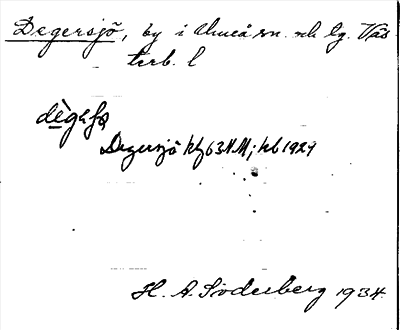 Degersjö, by i Umeå sn. och lg. Väs-
terb. l
Degersjö kf 63NM; kb 1929
H. A. Söderberg 1934.